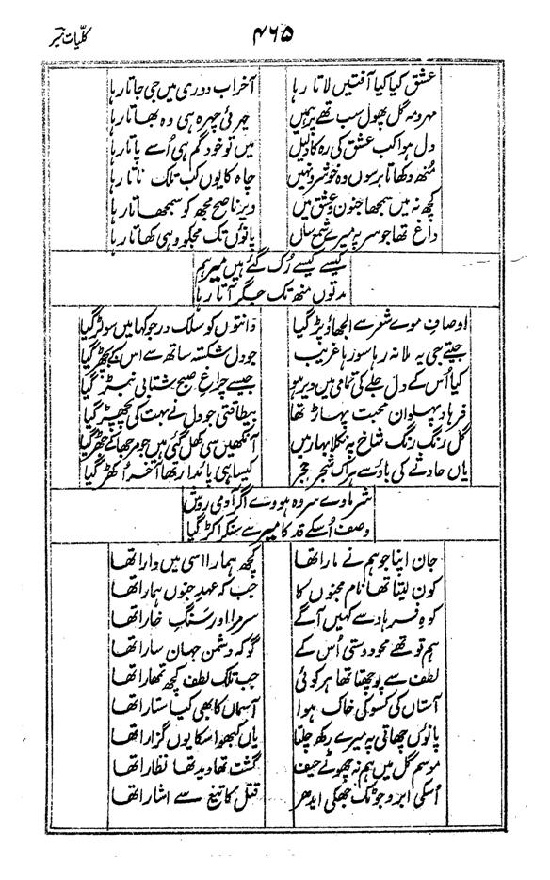 کلیات میر
۴۶۵
عشق کیا کیا آفتیں لاتا رہا آخراب دوری میں جی جاتا رہا
مہر و مہ گل پھول سب تھے پر ہمیں چہرئی چہرہ ہی وہ بھاتا رہا
دل ہوا کب عشق کی رہ کا دلیل میں تو خود گم ہی اُسے پاتا رہا
مُنھ دکھاتا برسوں وہ خوشرو نہیں چاہ کا یوں کب تلک ناتا رہا
کچھ نہ میں سمجھا جنون و عشق میں دیر ناصح مجھ کو سمجھاتا رہا
داغ تھا جو سر پہ میرے شمع ساں پاؤں تک مجکو وہی کھاتا رہا
کیسے کیسے رُک گئے ہیں میرؔ ہم
مدتوں منھ تک جگر آتا رہا
اوصافِ موے شعر سے الجھاؤ پڑ گیا دانتوں کو سلک در جو کہا میں سو لڑ گیا
جیتے جی یہ ملا نہ رہا سو رہا غریب جو دل شکستہ ساتھ سے اس کے بچھڑ گیا
کیا اُس کے دل جلے کی تمامی میں دیر ہو جیسے چراغِ صبح شتابی نبڑ گیا
فرہاد پہلوان محبت پہاڑ تھا بیطاقتی جو دل نے بہت کی پچھڑ گیا
گل رنگ رنگ شاخ پہ نکلا بہار میں آنکھیں سی کھل گئی ہیں جو مرجھا کے جھڑ گیا
یاں حادثے کی باؤ سے ہر اک شجر حجر کیسا ہی پائدار تھا آخر اُکھڑ گیا
شرماوے سرو ہووے اگر آدمی روش
وصف اُسکے قد کا میرؔ سے سنکر اکڑ گیا
جان اپنا جو ہم نے مارا تھا کچھ ہمارا اسی میں وارا تھا
کون لیتا تھا نام مجنوں کا جب کہ عہدِ جنوں ہمارا تھا
کوہ فرہاد سے کہیں آگے سر مرا اور سنگِ خارا تھا
ہم تو تھے محو دوستی اُس کے گو کہ دشمن جہان سارا تھا
لطف سے پوچھتا تھا ہر کوئی جب تلک لطف کچھ تمھارا تھا
آستاں کی کسو کی خاک ہوا آسماں کا بھی کیا ستارا تھا
پاؤں چھاتی پہ میرے رکھ چلتا یاں کبھو اسکا یوں گزارا تھا
موسم گل میں ہم نہ چھوٹے حیف گشت تھا دید تھا نظارا تھا
اُسکی ابرو جو ٹک جھکی ایدھر قتل کا تیغ سے اشارا تھا